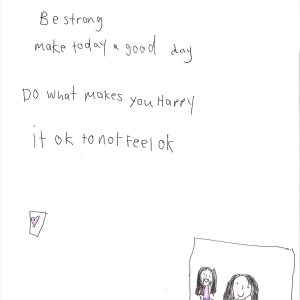 Be strong
make today a good day
Do what makes you Happy
it ok to not Feel ok